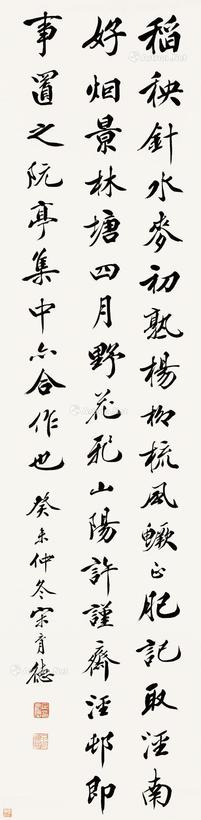 稻秧針水麥初熟楊柳梳風鱖正肥記取涇南
好烟景林塘四月野花飛山陽許謹齋涇邨即
事置之阮亭集中亦合作也
癸未仲冬宋育德